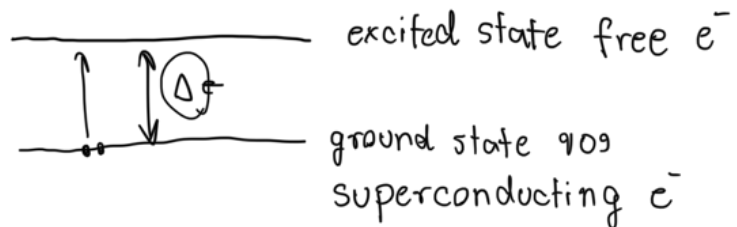 excited state free e⁻
Δ
ground state ของ
superconducting e⁻